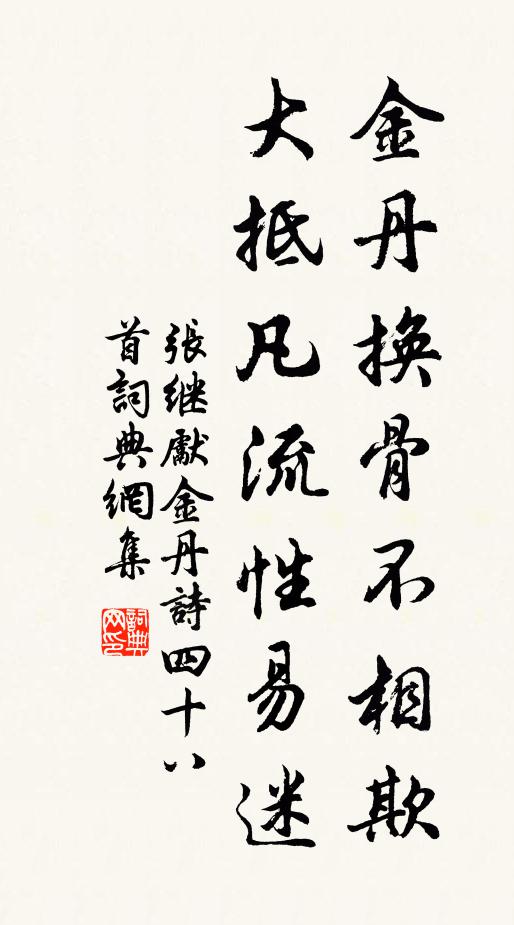 金丹換骨不相欺
大抵凡流性易迷
張继獻金丹詩四十八
首詞典網集
詞典
网印